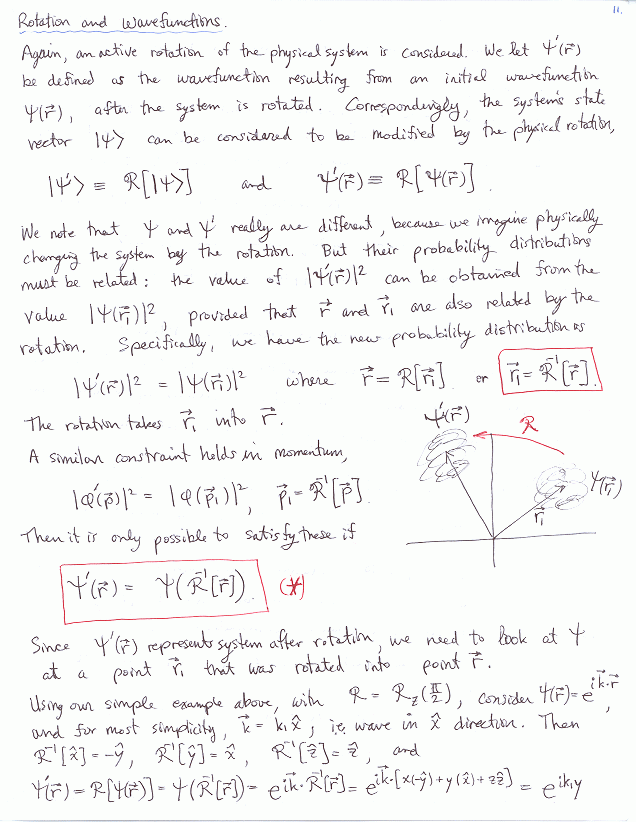 11.
Rotation and Wavefunctions.
Again, an active rotation of the physical system is considered. We let Ψ'(r⃗)
be defined as the wavefunction resulting from an initial wavefunction
Ψ(r⃗), after the system is rotated. Correspondingly, the system's state
vector |Ψ> can be considered to be modified by the physical rotation,
|Ψ'> ≡ R[|Ψ>] and Ψ'(r⃗) ≡ R[Ψ(r⃗)].
We note that Ψ and Ψ' really are different, because we imagine physically
changing the system by the rotation. But their probability distributions
must be related: the value of |Ψ'(r⃗)|² can be obtained from the
value |Ψ(r⃗₁)|², provided that r⃗ and r⃗₁ are also related by the
rotation. Specifically, we have the new probability distribution as
|Ψ'(r⃗)|² = |Ψ(r⃗₁)|² where r⃗ = R[r⃗₁] or r⃗₁ = R⁻¹[r⃗].
The rotation takes r⃗₁ into r⃗.
Ψ'(r⃗)
R
A similar constraint holds in momentum,
Ψ(r⃗₁)
r⃗₁
|φ'(p⃗)|² = |φ(p⃗₁)|², p⃗₁ = R⁻¹[p⃗].
Then it is only possible to satisfy these if
Ψ'(r⃗) = Ψ(R⁻¹[r⃗]). (*)
Since Ψ'(r⃗) represents system after rotation, we need to look at Ψ
at a point r⃗₁ that was rotated into point r⃗.
Using our simple example above, with R = R_z(π/2), consider Ψ(r⃗) = e^{ik⃗·r⃗},
and for most simplicity, k⃗ = k₁x̂, i.e. wave in x̂ direction. Then
R⁻¹[x̂] = -ŷ, R⁻¹[ŷ] = x̂, R⁻¹[ẑ] = ẑ, and
Ψ'(r⃗) = R[Ψ(r⃗)] = Ψ(R⁻¹[r⃗]) = e^{ik⃗·R⁻¹[r⃗]} = e^{ik⃗·[x(-ŷ)+y(x̂)+zẑ]} = e^{ik₁y}